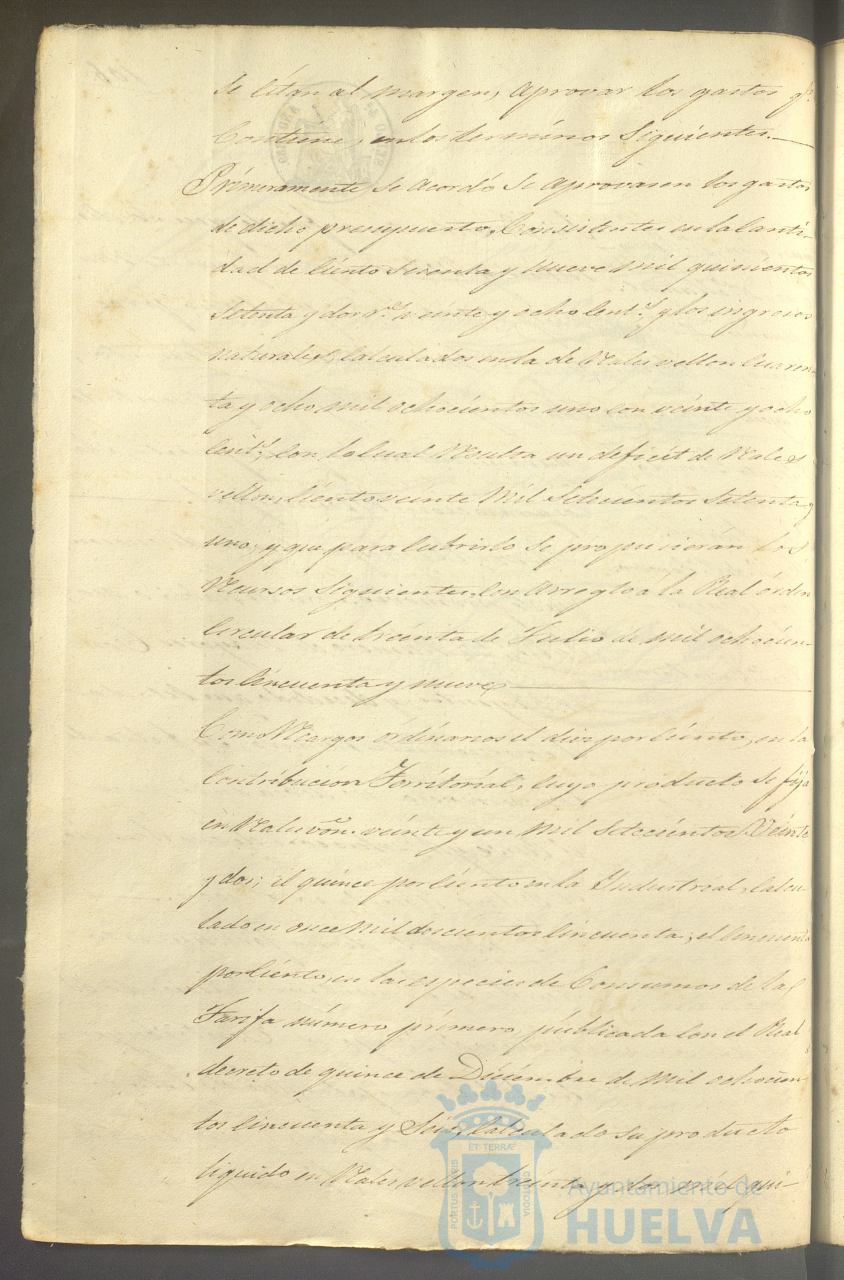 se citan al margen, aprovar los gastos q.e
Contiene, en los terminos Siguientes.—
Primeramente, se acordó se aprovasen los gastos
de dicho presupuesto, Consistentes en la Canti-
dad de Ciento Sesenta y nueve mil quinientos
Setenta y dos r.s veinte y ocho Cent.s y los ingresos
naturales, Calculados en la de Reales vellon Cuaren-
ta y ocho mil ochocientos uno con veinte y ocho
Cent.s, con lo Cual Resulta un deficit de Reales
vellon, Ciento veinte Mil Setecientos Setenta y
uno; y que para Cubrirlo se propusieran los
Recursos Siguientes, Con arreglo a la Real órden
Circular de treinta de Julio de mil ochocien-
tos Cincuenta y nueve
Com Recargos órdinarios el diez por Ciento, en la
Contribución Territorial, Cuyo producto se fija
en Reales von. veinte y un mil Setecientos Veinte
y dos; el quince por Ciento en la Yndustrial, Calcu-
lado en once Mil doscientos Cincuenta; el Cincuenta
por Ciento, en las especies de Consumos de la
Tarifa número primero, publicada con el Real
decreto de quince de Diciembre de mil ochocien-
tos Cincuenta y Seis, Calculado su producto
liquido en Reales vellon treinta y dos mil qui-
PORTUS MARIS ET TERRAE CUSTODIA
Ayuntamiento de
HUELVA